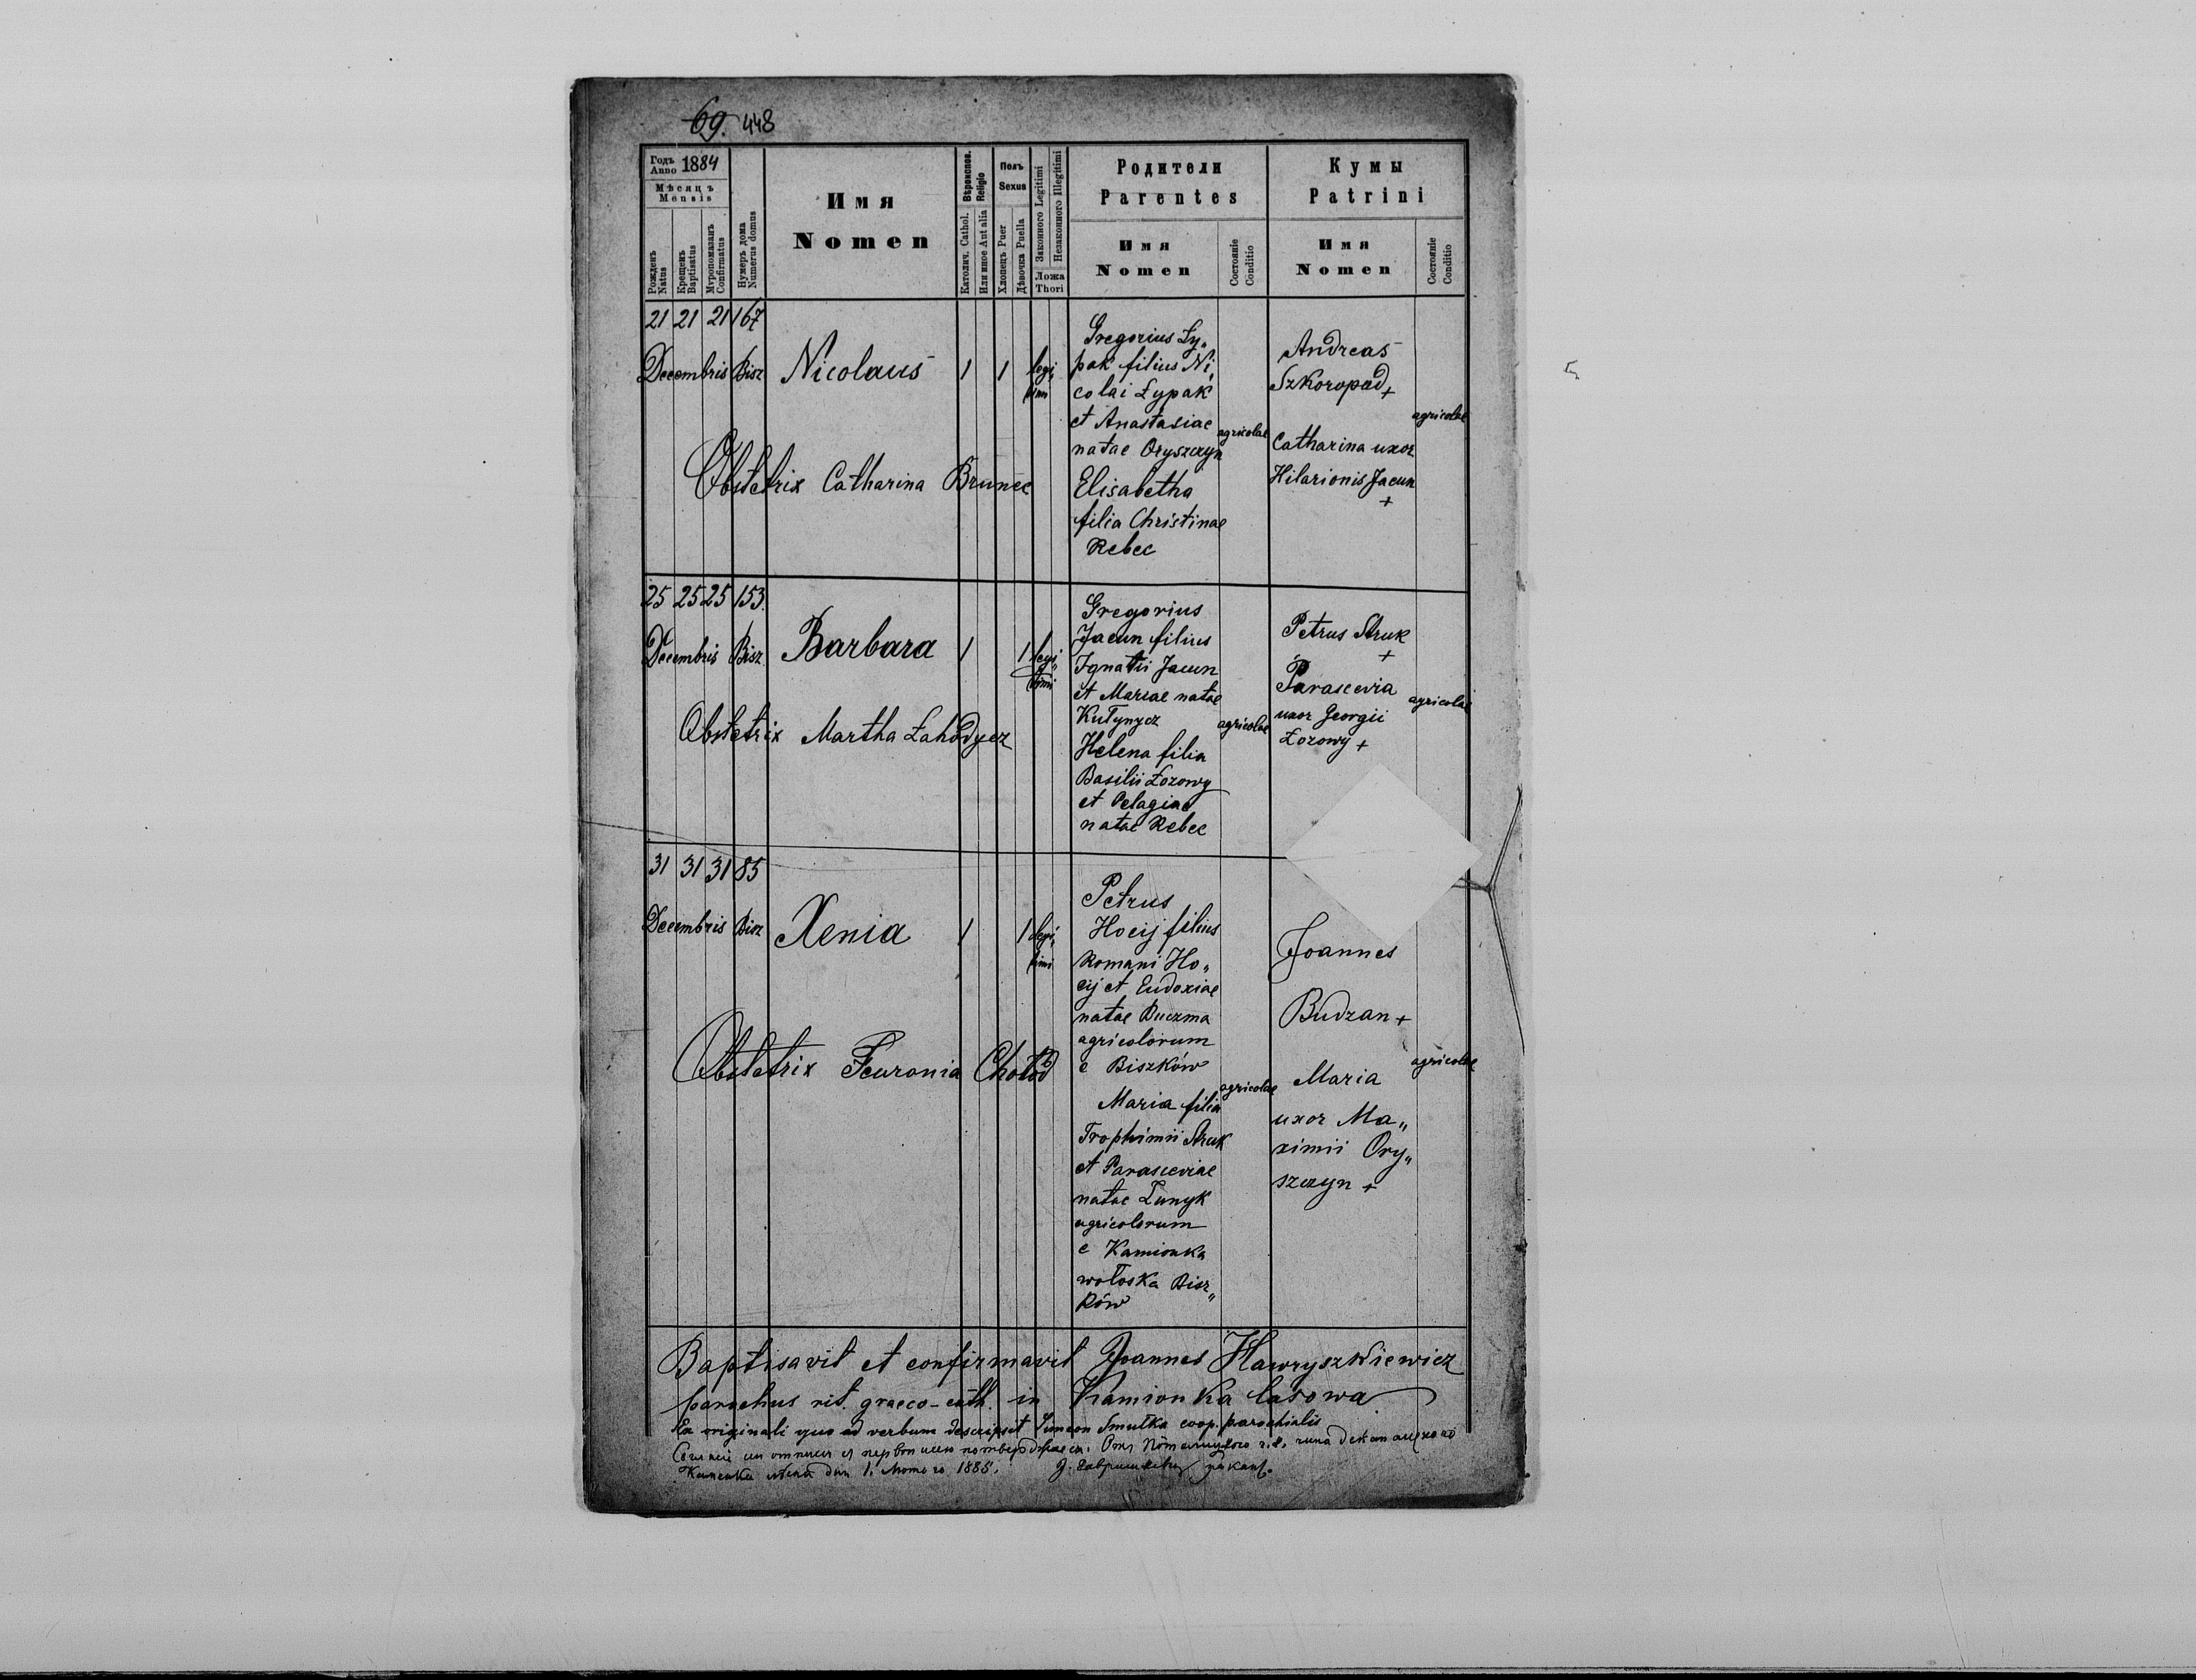 69. 448
Годъ Anno 1884
Мѣсяцъ
Mensis
Рожденъ Natus
Крещенъ Baptisatus
Мѵропомазанъ Confirmatus
Нумеръ дома Numerus domus
Имя
Nomen
Вѣроиспов. Religio
Католич. Cathol.
Или иное Aut alia
Полъ
Sexus
Хлопецъ Puer
Дѣвочка Puella
Законного Legitimi
Незаконного Illegitimi
Ложа
Thori
Родители
Parentes
Имя
Nomen
Состоянiе Conditio
Кумы
Patrini
Имя
Nomen
Состоянiе Conditio
21 21 21 167
Decembris Bisz Nicolaus 1 1 legi„
timi
Gregorius Ły„
pak filius Ni„
colai Łypak
et Anastasiae
natae Oryszczyn
agricolae
Elisabetha
filia Christinae
Rebec
Andreas
Szkoropad +
agricolae
Catharina uxor
Hilarionis Jacun
+
Obstetrix Catharina Brunec
25 25 25 153.
Decembris Bisz Barbara 1 1 legi„
timi
Gregorius
Jacun filius
Ignatii Jacun
et Mariae natae
Kułynycz
agricolae
Helena filia
Basilii Łozowy
et Pelagiae
natae Rebec
Petrus Struk
+
Parascevia
uxor Georgii
Łozowy +
agricolae
Obstetrix Martha Łahodycz
31 31 31 85
Decembris Bisz Xenia 1 1 legi„
timi
Petrus
Hocij filius
Romani Ho„
cij et Eudoxiae
natae Duczma
agricolorum
e Biszków
agricolae
Maria filia
Trophimii Struk
et Parasceviae
natae Łunyk
agricolorum
e Kamionka
wołoska Bisz„
ków
Joannes
Budzan +
agricolae
Maria
uxor Ma„
ximii Ory„
szczyn +
Obstetrix Feuronia Chołod
Baptisavit et confirmavit Joannes Hawryszkiewicz
parochus rit. graeco-cath. in Kamionka lasowa
Ex originali quo ad verbum descripsit Simeon Smulka coop. parochialis
1885.